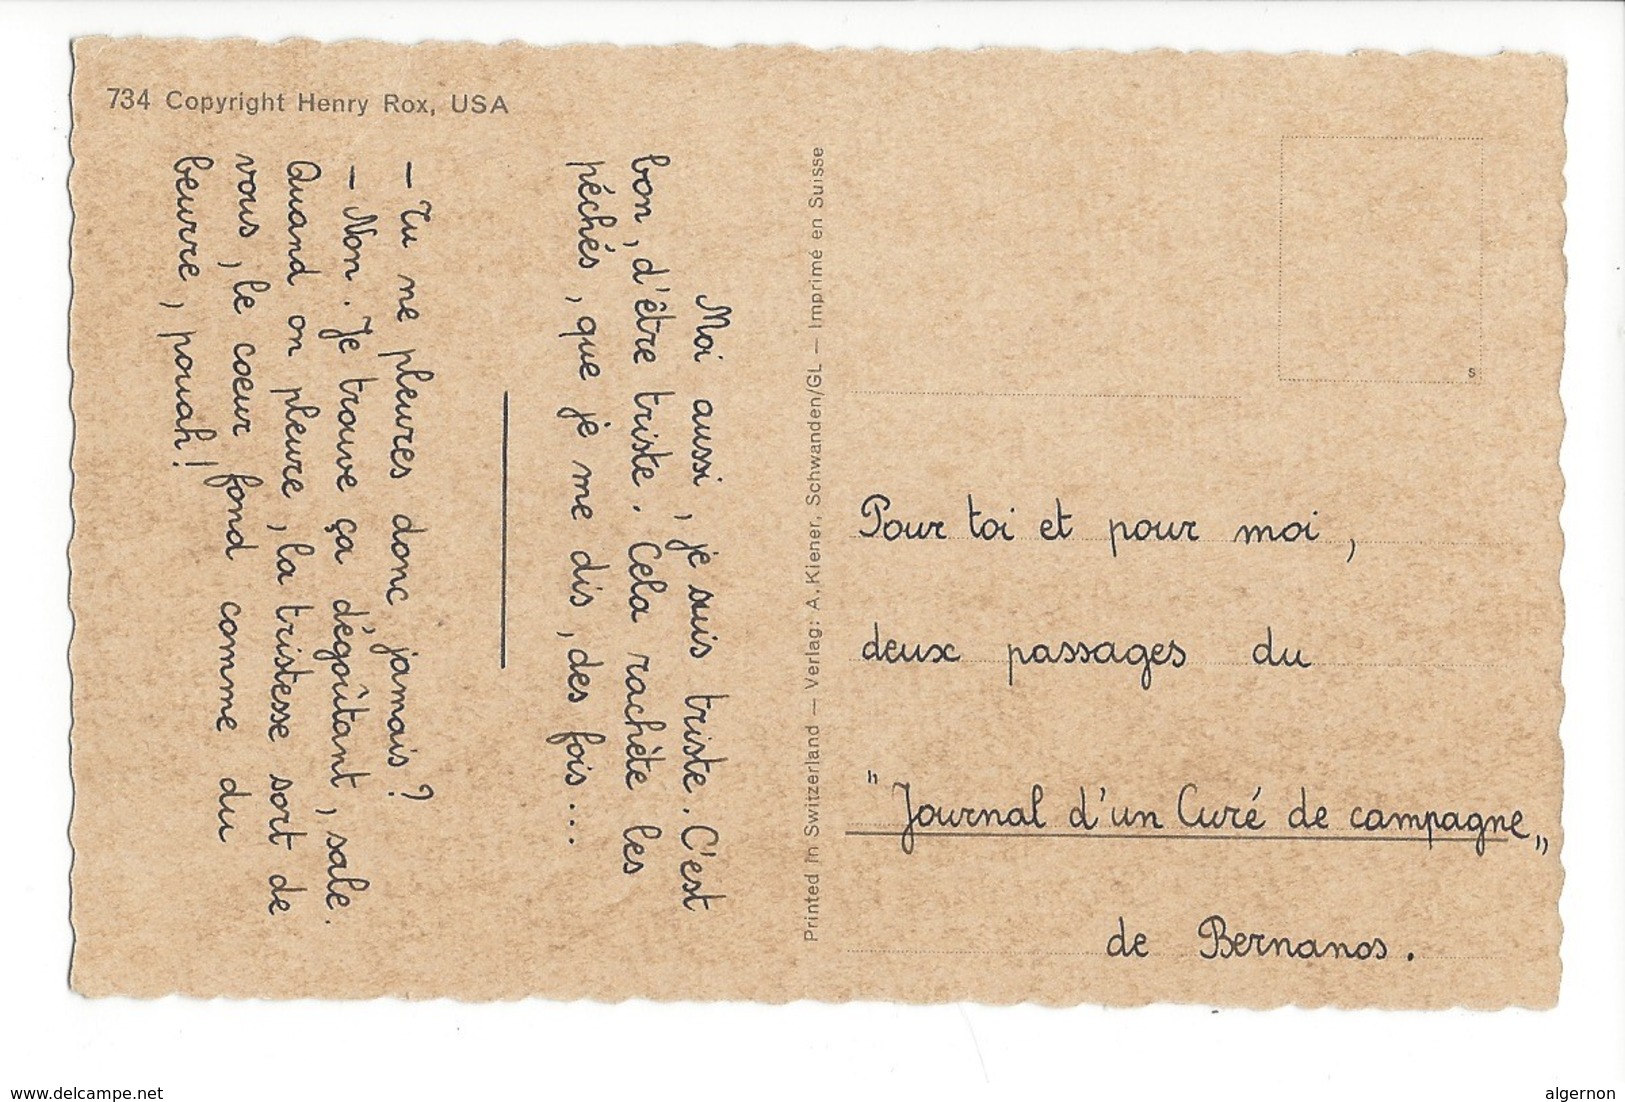 734 Copyright Henry Rox, USA
Moi aussi, je suis triste. C'est
bon, d'être triste. Cela rachète les
péchés, que je me dis, des fois...
— Tu ne pleures donc jamais ?
— Non. Je trouve ça dégoûtant, sale.
Quand on pleure, la tristesse sort de
vous, le coeur fond comme du
beurre, pouah !
Printed in Switzerland — Verlag: A. Kiener, Schwanden/GL — Imprimé en Suisse
s
Pour toi et pour moi,
deux passages du
"Journal d'un Curé de campagne"
de Bernanos.
www.delcampe.net
algernon